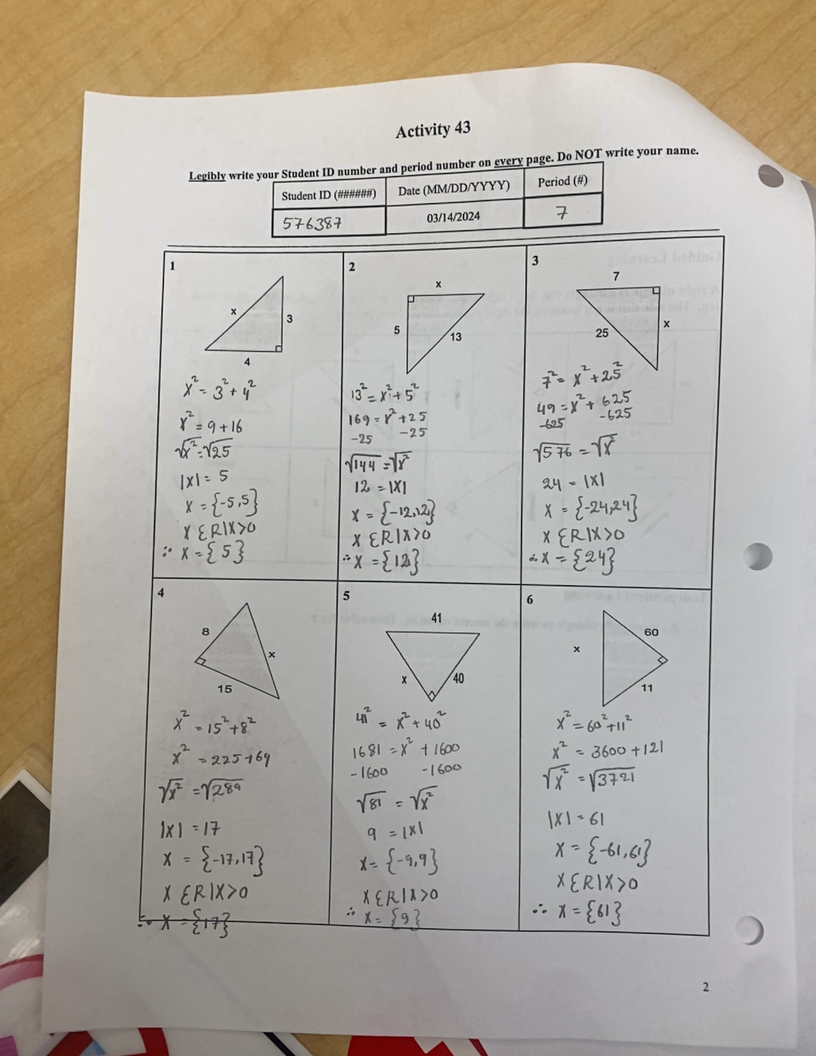 Activity 43
Legibly write your Student ID number and period number on every page. Do NOT write your name.
Student ID (######) Date (MM/DD/YYYY) Period (#)
576387 03/14/2024 7
1
x
3
4
x² = 3² + 4²
x² = 9 + 16
√x² = √25
|x| = 5
x = {-5,5}
x ƐR|x>0
∴ x = {5}
2
x
5
13
13² = x² + 5²
169 = x² + 25
-25 -25
√144 = √x²
12 = |x|
x = {-12,12}
x ƐR|x>0
∴ x = {12}
3
7
x
25
7² = x² + 25²
49 = x² + 625
-625 -625
√576 = √x²
24 = |x|
x = {-24,24}
x ƐR|x>0
∴ x = {24}
4
8
x
15
x² = 15² + 8²
x² = 225 + 64
√x² = √289
|x| = 17
x = {-17,17}
x ƐR|x>0
∴ x = {17}
5
41
x
40
41² = x² + 40²
1681 = x² + 1600
-1600 -1600
√81 = √x²
9 = |x|
x = {-9,9}
x ƐR|x>0
∴ x = {9}
6
60
x
11
x² = 60² + 11²
x² = 3600 + 121
√x² = √3721
|x| = 61
x = {-61,61}
x ƐR|x>0
∴ x = {61}
2